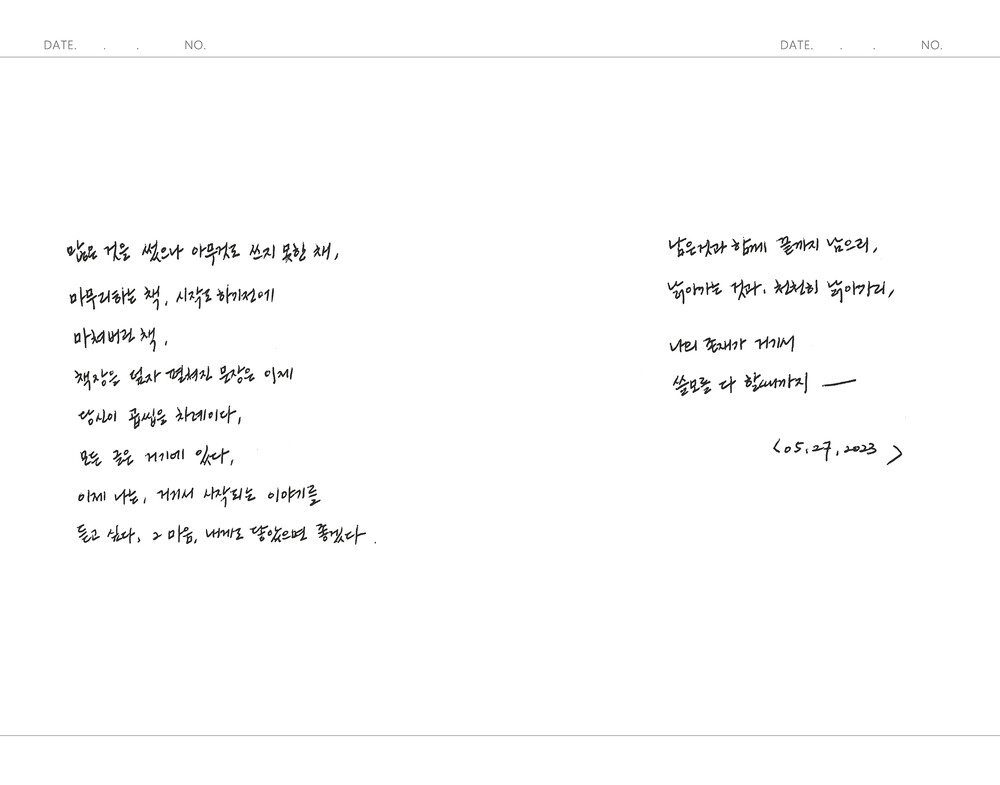 DATE. . . NO.
많은 것을 썼으나 아무것도 쓰지 못한 채,
마무리하는 책, 시작도 하기전에
마쳐버린 책,
책장을 덮자 펼쳐진 문장은 이제
당신이 곱씹을 차례이다,
모든 글은 거기에 있다,
이제 나는, 거기서 시작되는 이야기를
듣고 싶다, 그 마음, 내게로 닿았으면 좋겠다.
DATE. . . NO.
남은것과 함께 끝까지 남으리,
낡아가는 것과, 천천히 낡아가리,
나의 존재가 거기서
쓸모를 다 할때까지 —
<05.27.2023>